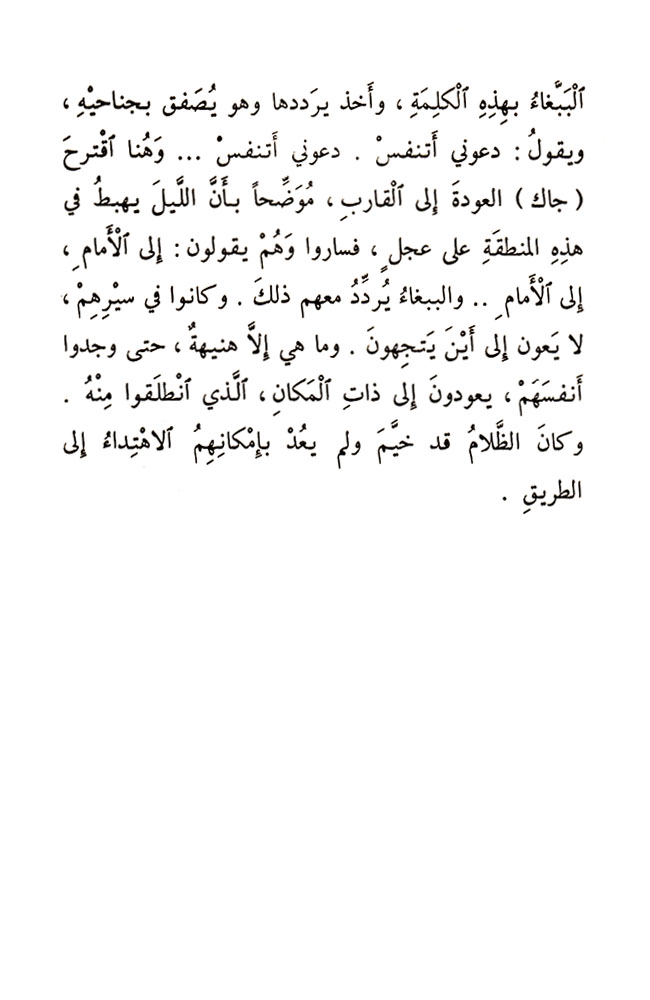 ٱلْبَبَّغاءُ بهِذِهِ ٱلْكلِمَةِ ، وأَخذ يرَددها وهو يُصَفق بجناحيْهِ ،
ويقولُ : دعوني أَتنفسْ . دعوني أَتنفسْ ... وَهُنا ٱقْترحَ
( جاك ) العودةَ إِلى ٱلْقاربِ ، مُوَضِّحاً بأَنَّ اللَّيلَ يهبطُ في
هذِهِ المنطقَةِ على عجلٍ ، فساروا وَهُمْ يقولون : إِلى ٱلْأَمامِ ،
إِلى ٱلْأَمامِ .. والببغاءُ يُردِّدُ معهم ذلكَ . وكانوا في سيْرِهِمْ ،
لا يَعون إِلى أَيْنَ يَتجِهونَ . وما هي إِلاَّ هنيهةٌ ، حتى وجدوا
أَنفسَهَمْ ، يعودونَ إِلى ذاتِ ٱلْمَكانِ ، ٱلَّذي ٱنْطلَقوا مِنْهُ .
وكانَ الظَّلامُ قد خيَّمَ ولم يعُدْ بإِمْكانِهِمُ ٱلاهْتِداءُ إِلى
الطريقِ .